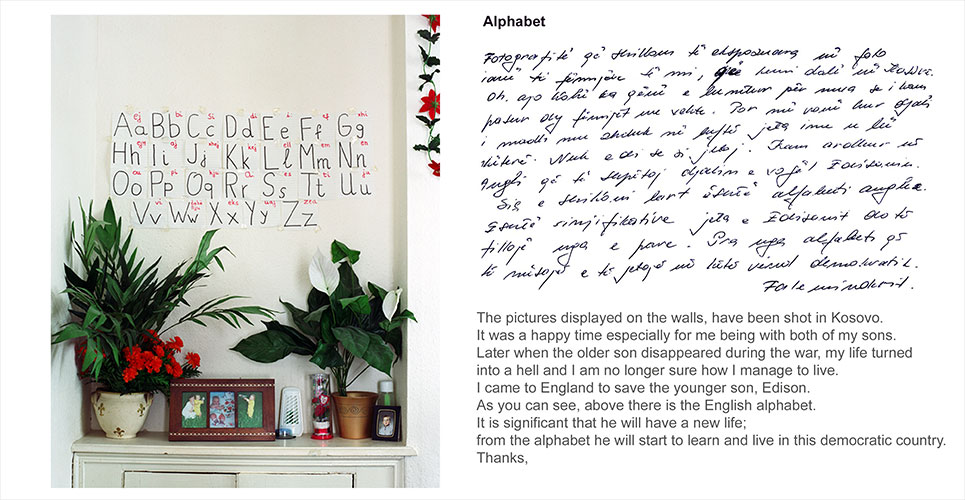 Aa Bb Cc Dd Ee Ff Gg
Hh Ii Jj Kk Ll Mm Nn
Oo Pp Qq Rr Ss Tt Uu
Vv Ww Xx Yy Zz
Alphabet
Fotografitë që shikoni të ekspozuara në foto
janë të fëmijve të mi, që kemi dalë në Kosovë.
Oh, ajo kohë ka qënë e lumtur për mua se i kam
pasur dy fëmijët me vehte. Por më vonë kur djali
i madh mu zhduk në luftë jeta ime u bë
Nuk e di se si jetoj. Kam ardhur në
Angli që të shpëtoj djalin e vogël Edisonin.
Siç e shikoni lart është alfabeti anglez.
Është sinjifikative jeta e Edisonit do të
fillojë nga e para. Pra nga alfabeti që
të mësojë e të jetojë në këtë vend demokratik.
Faleminderit.
The pictures displayed on the walls, have been shot in Kosovo.
It was a happy time especially for me being with both of my sons.
Later when the older son disappeared during the war, my life turned
into a hell and I am no longer sure how I manage to live.
I came to England to save the younger son, Edison.
As you can see, above there is the English alphabet.
It is significant that he will have a new life;
from the alphabet he will start to learn and live in this democratic country.
Thanks,